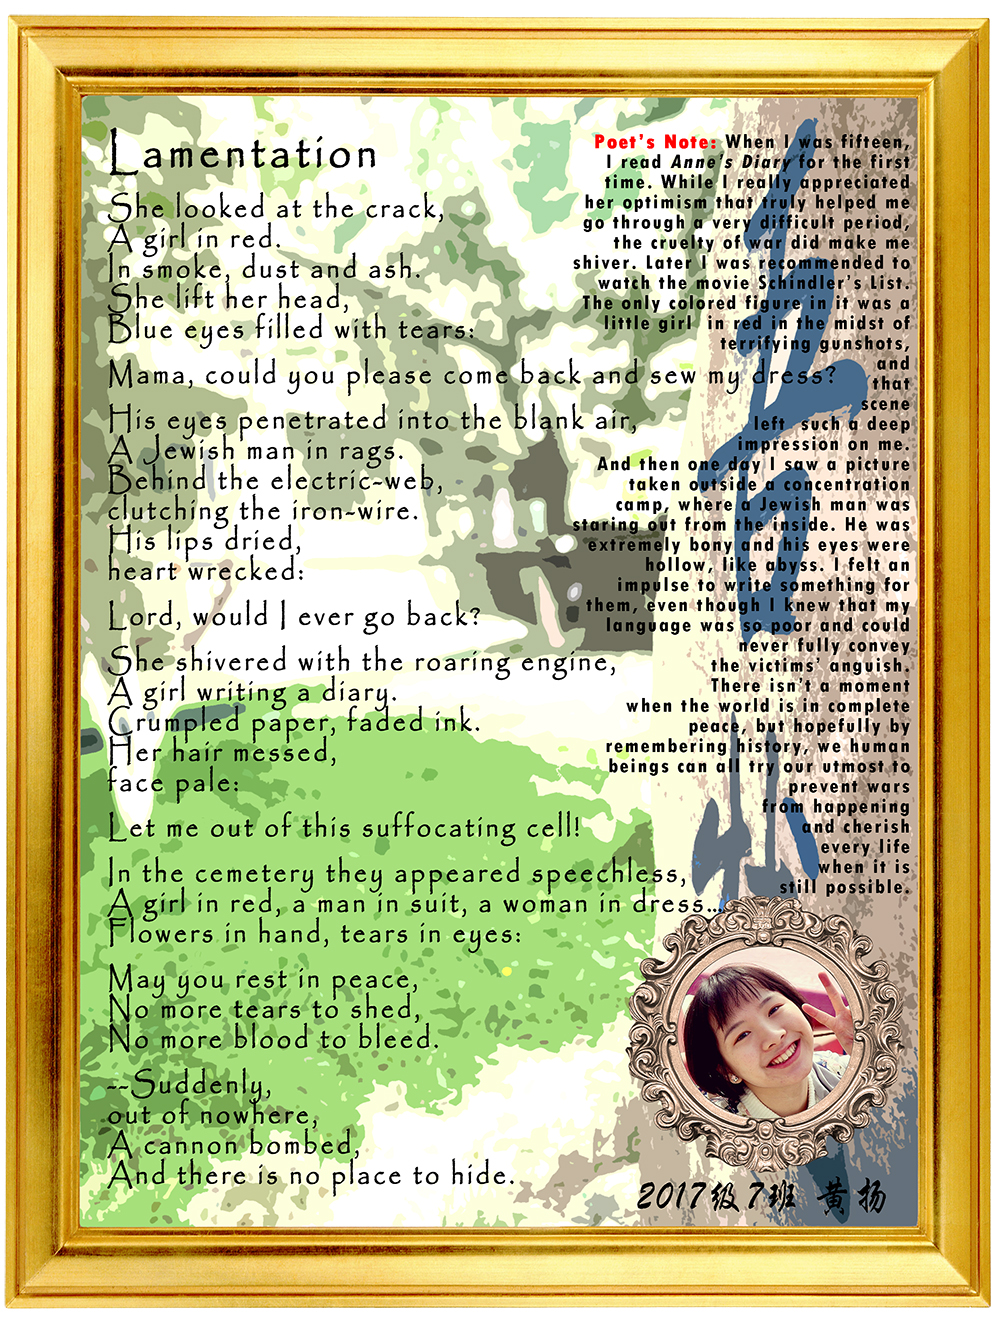 Lamentation
She looked at the crack,
A girl in red.
In smoke, dust and ash.
She lift her head,
Blue eyes filled with tears:
Mama, could you please come back and sew my dress?
His eyes penetrated into the blank air,
A Jewish man in rags.
Behind the electric-web,
clutching the iron-wire.
His lips dried,
heart wrecked:
Lord, would I ever go back?
She shivered with the roaring engine,
A girl writing a diary.
Crumpled paper, faded ink.
Her hair messed,
face pale:
Let me out of this suffocating cell!
In the cemetery they appeared speechless,
A girl in red, a man in suit, a woman in dress...
Flowers in hand, tears in eyes:
May you rest in peace,
No more tears to shed,
No more blood to bleed.
--Suddenly,
out of nowhere,
A cannon bombed,
And there is no place to hide.
Poet's Note: When I was fifteen,
I read Anne's Diary for the first
time. While I really appreciated
her optimism that truly helped me
go through a very difficult period,
the cruelty of war did make me
shiver. Later I was recommended to
watch the movie Schindler's List.
The only colored figure in it was a
little girl in red in the midst of
terrifying gunshots,
and
that
scene
left such a deep
impression on me.
And then one day I saw a picture
taken outside a concentration
camp, where a Jewish man was
staring out from the inside. He was
extremely bony and his eyes were
hollow, like abyss. I felt an
impulse to write something for
them, even though I knew that my
language was so poor and could
never fully convey
the victims' anguish.
There isn't a moment
when the world is in complete
peace, but hopefully by
remembering history, we human
beings can all try our utmost to
prevent wars
from happening
and cherish
every life
when it is
still possible.
2017级7班 黄扬